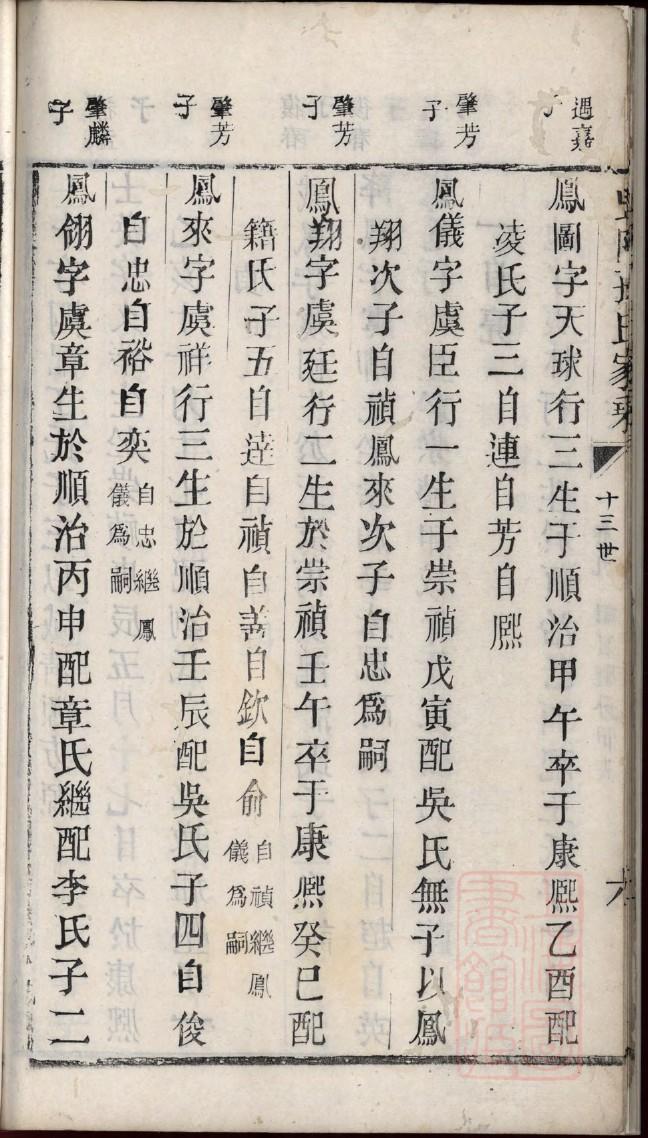 氏家乘
十三世
遇嘉子
鳳圖字天球行三生于順治甲午卒于康熙乙酉配
凌氏子三自連自芳自熙
肇芳子
鳳儀字虞臣行一生于崇禎戊寅配吳氏無子以鳳
翔次子自禎鳳來次子自忠爲嗣
肇芳子
鳳翔字虞廷行二生於崇禎壬午卒于康熙癸巳配
籍氏子五自逹自禎自善自欽自俞自禎繼鳳儀爲嗣
肇芳子
鳳來字虞祥行三生於順治壬辰配吳氏子四自俊
自忠自裕自奕自忠繼鳳儀爲嗣
肇麟子
鳳翎字虞章生於順治丙申配章氏繼配李氏子二